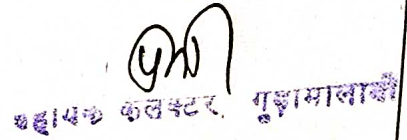 सहायक कलक्टर, गुड़ामालानी